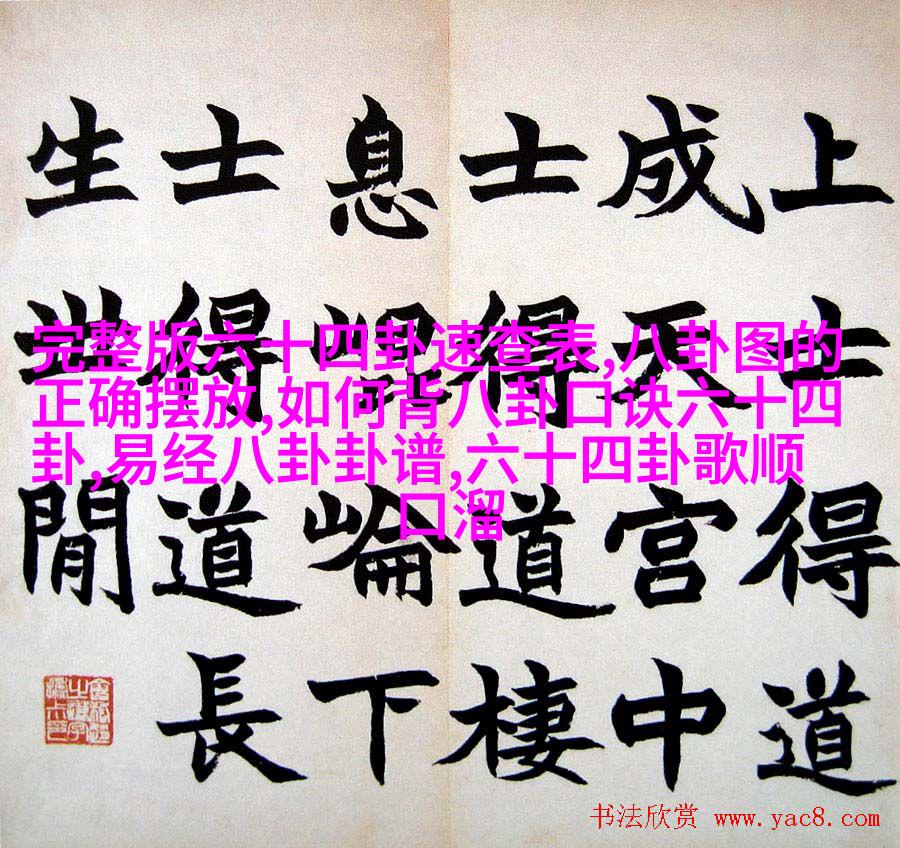 上士得道
成天宮中
士得道棲
息崐崘下
士得道長
生世閒
完整版六十四卦速查表,八卦图的
正确摆放,如何背八卦口诀六十四
卦,易经八卦卦谱,六十四卦歌顺
口溜
书法欣赏 www.yac8.com